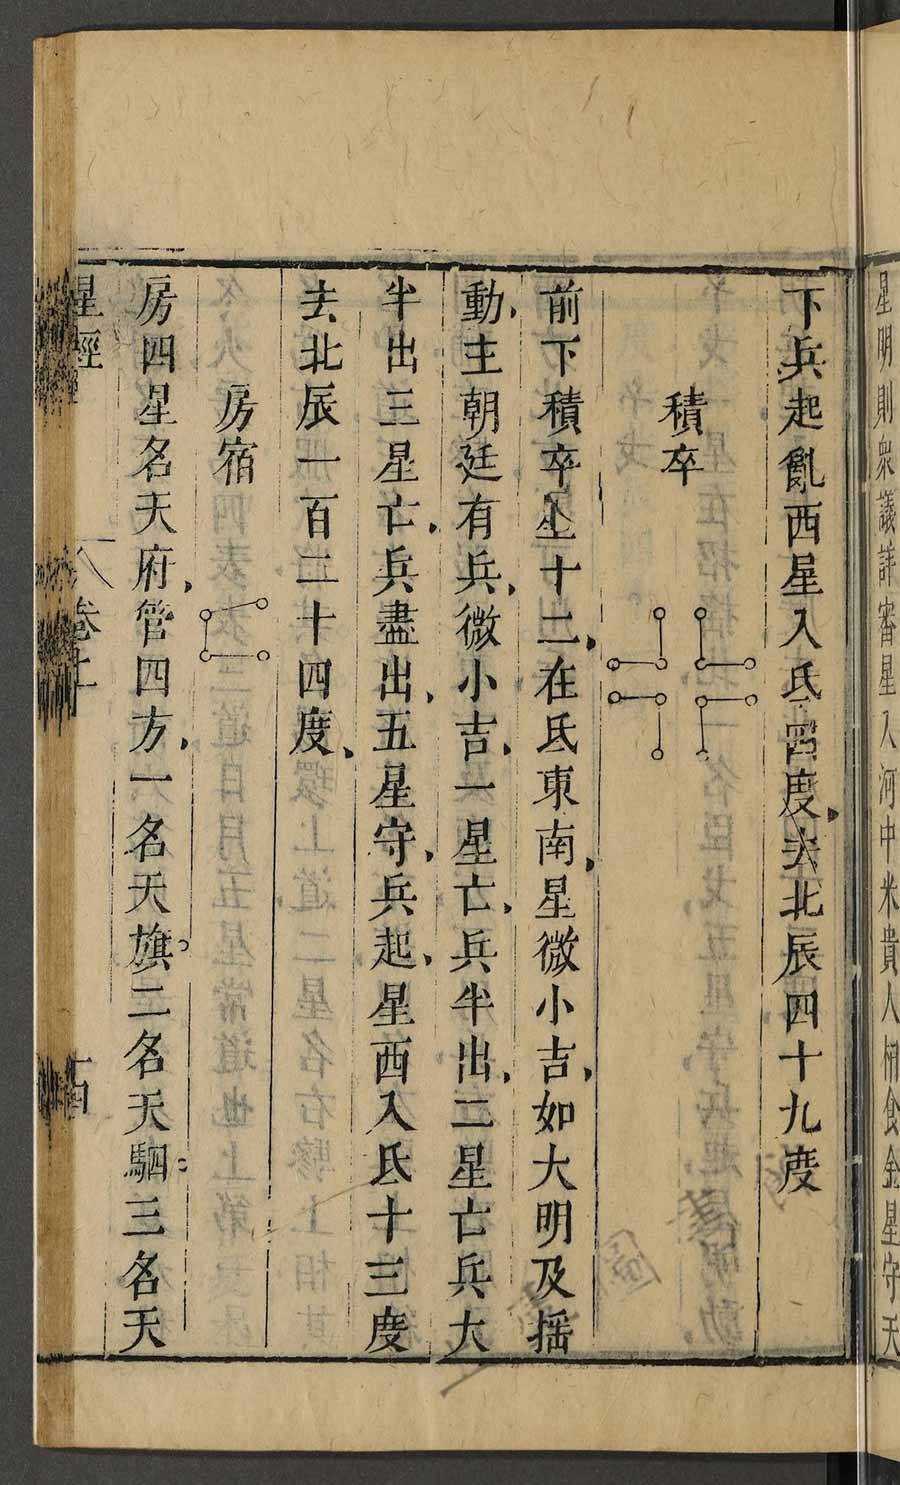 星明則衆議詳審星入河中米貴人相食金星守天
下兵起亂西星入氐四度去北辰四十九度
積卒
前下積卒星十二在氐東南星微小吉如大明及揺
動主朝廷有兵微小吉一星亡兵半出二星亡兵大
半出三星亡兵盡出五星守兵起星西入氐十三度
去北辰一百二十四度
房宿
房四星名天府管四方一名天旗二名天駟三名天
星經
卷上